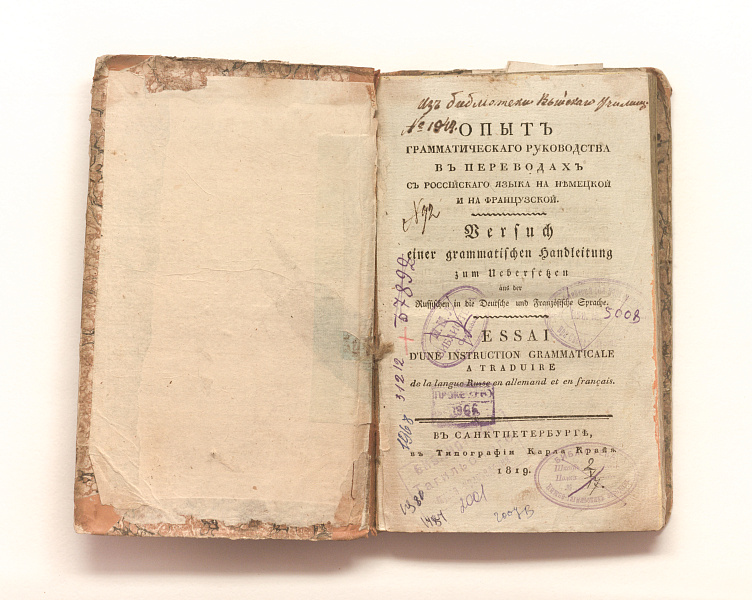 Изъ библіотеки Выйскаго Училищ
ОПЫТЪ
ГРАММАТИЧЕСКАГО РУКОВОДСТВА
ВЪ ПЕРЕВОДАХЪ
СЪ РОССІЙСКАГО ЯЗЫКА НА НѢМЕЦКОЙ
И НА ФРАНЦУЗСКОЙ.
N 92
Versuch
einer grammatischen Handleitung
zum Uebersetzen
aus der
Russischen in die Deutsche und Französische Sprache.
57892
500В
ESSAI
D'UNE INSTRUCTION GRAMMATICALE
A TRADUIRE
de la langue Russe en allemand et en français.
1968 31212
1966
ВЪ САНКТПЕТЕРБУРГѢ,
въ Типографіи Карла Крайя
1819.
1320
1484
2001
2007 В